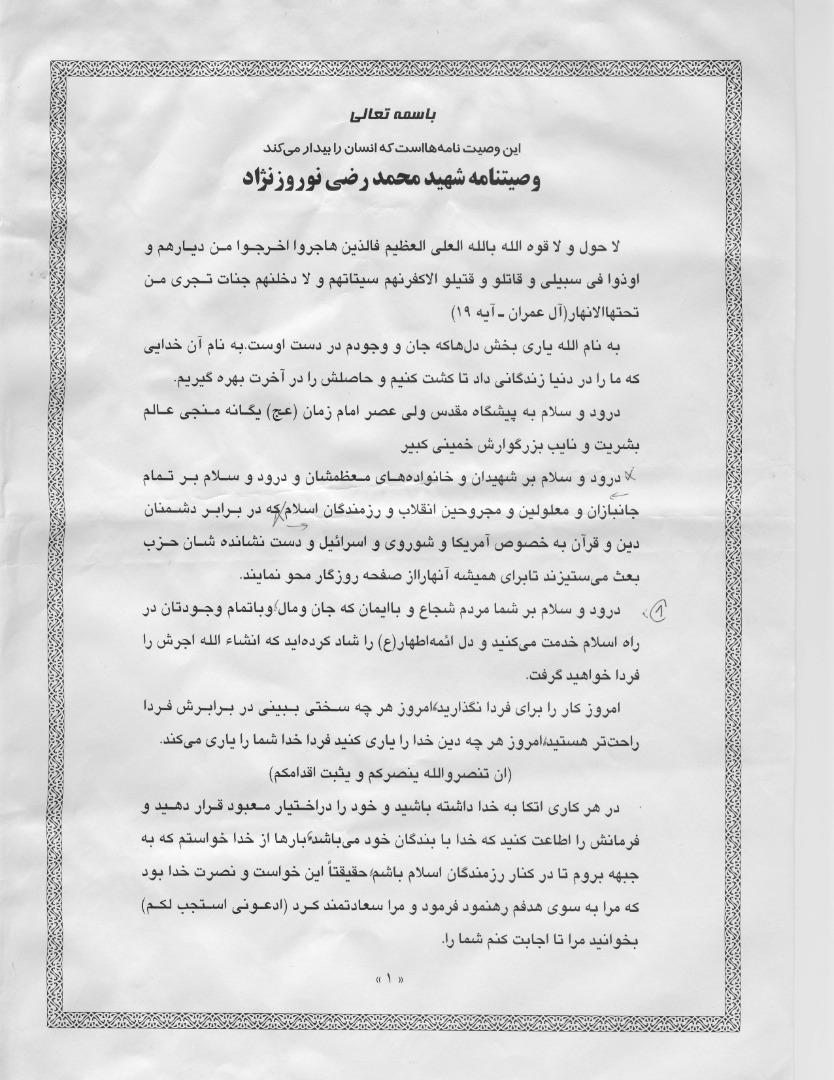 باسمه تعالی
این وصیت نامه‌هااست که انسان را بیدار می‌کند
وصیتنامه شهید محمد رضی نوروزنژاد
لا حول و لا قوه الله بالله العلی العظیم فالذین هاجروا اخرجوا من دیارهم و
اوذوا فی سبیلی و قاتلو و قتیلو الاکفرنهم سیتاتهم و لا دخلنهم جنات تجری من
تحتهاالانهار(آل عمران ـ آیه ۱۹)
به نام الله یاری بخش دل‌هاکه جان و وجودم در دست اوست.به نام آن خدایی
که ما را در دنیا زندگانی داد تا کشت کنیم و حاصلش را در آخرت بهره گیریم.
درود و سلام به پیشگاه مقدس ولی عصر امام زمان (عج) یگانه منجی عالم
بشریت و نایب بزرگوارش خمینی کبیر
درود و سلام بر شهیدان و خانواده‌های معظمشان و درود و سلام بر تمام
جانبازان و معلولین و مجروحین انقلاب و رزمندگان اسلام که در برابر دشمنان
دین و قرآن به خصوص آمریکا و شوروی و اسرائیل و دست نشانده شان حزب
بعث می‌ستیزند تابرای همیشه آنهارااز صفحه روزگار محو نمایند.
۱ درود و سلام بر شما مردم شجاع و باایمان که جان ومال وباتمام وجودتان در
راه اسلام خدمت می‌کنید و دل ائمه‌اطهار(ع) را شاد کرده‌اید که انشاء الله اجرش را
فردا خواهید گرفت.
امروز کار را برای فردا نگذارید،امروز هر چه سختی ببینی در برابرش فردا
راحت‌تر هستید،امروز هر چه دین خدا را یاری کنید فردا خدا شما را یاری می‌کند.
(ان تنصروالله ینصرکم و یثبت اقدامکم)
در هر کاری اتکا به خدا داشته باشید و خود را دراختیار معبود قرار دهید و
فرمانش را اطاعت کنید که خدا با بندگان خود می‌باشد،بارها از خدا خواستم که به
جبهه بروم تا در کنار رزمندگان اسلام باشم،حقیقتاً این خواست و نصرت خدا بود
که مرا به سوی هدفم رهنمود فرمود و مرا سعادتمند کرد (ادعونی استجب لکم)
بخوانید مرا تا اجابت کنم شما را.
« ۱ »